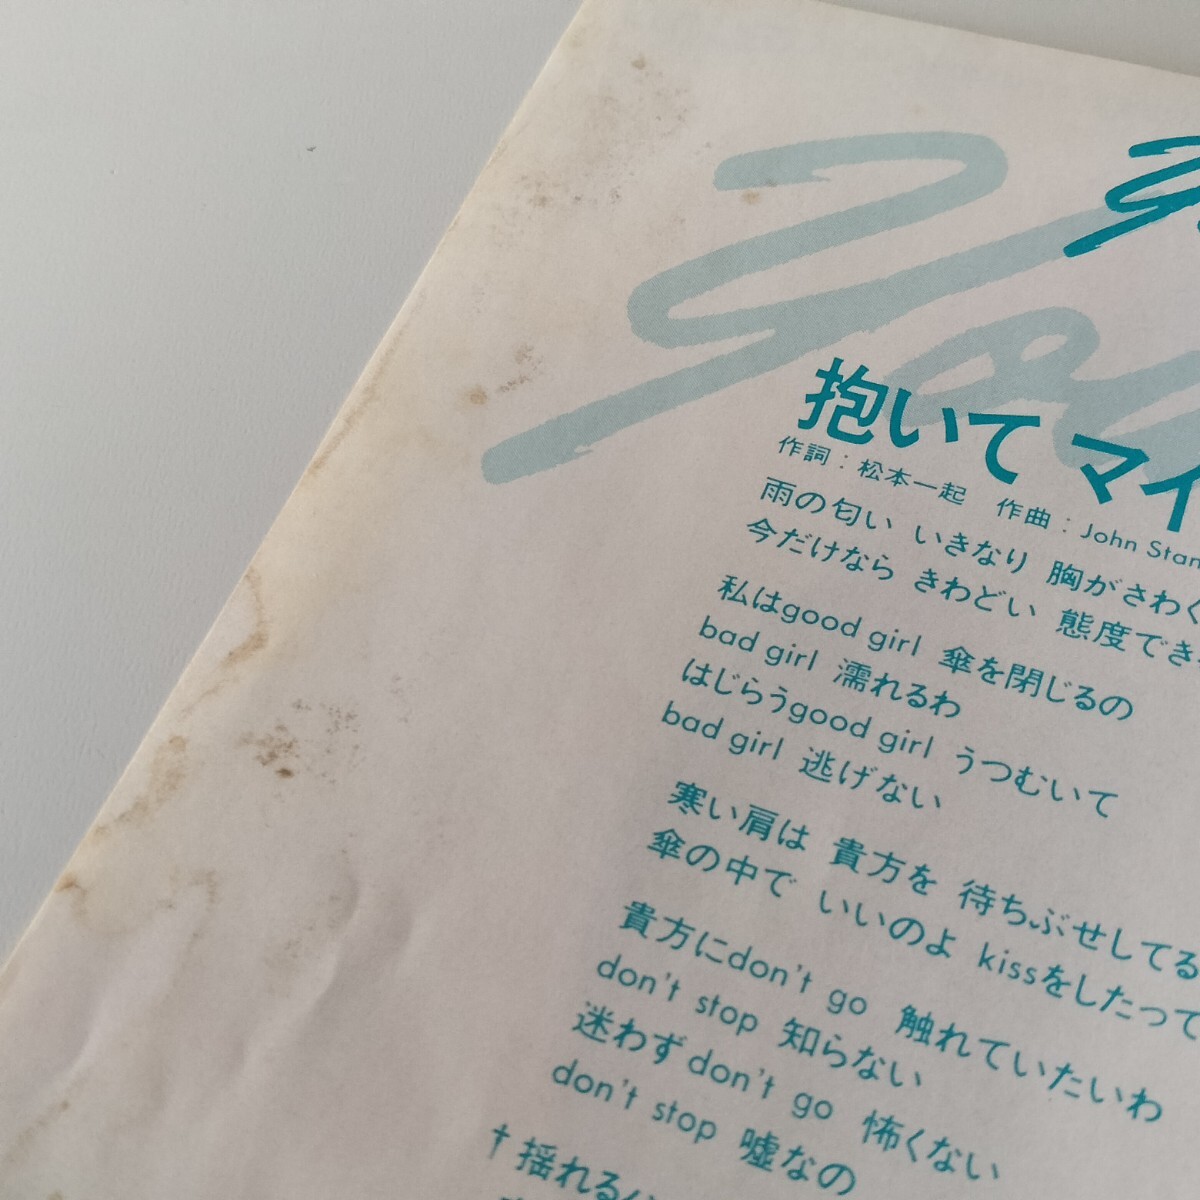 You
抱いて マイ
作詞：松本一起　作曲：John Stan
雨の匂い いきなり 胸がさわぐ
今だけなら きわどい 態度でき
私はgood girl 傘を閉じるの
bad girl 濡れるわ
はじらうgood girl うつむいて
bad girl 逃げない
寒い肩は 貴方を 待ちぶせしてる
傘の中で いいのよ kissをしたって
貴方にdon't go 触れていたいわ
don't stop 知らない
迷わずdon't go 怖くない
don't stop 嘘なの
†揺れる